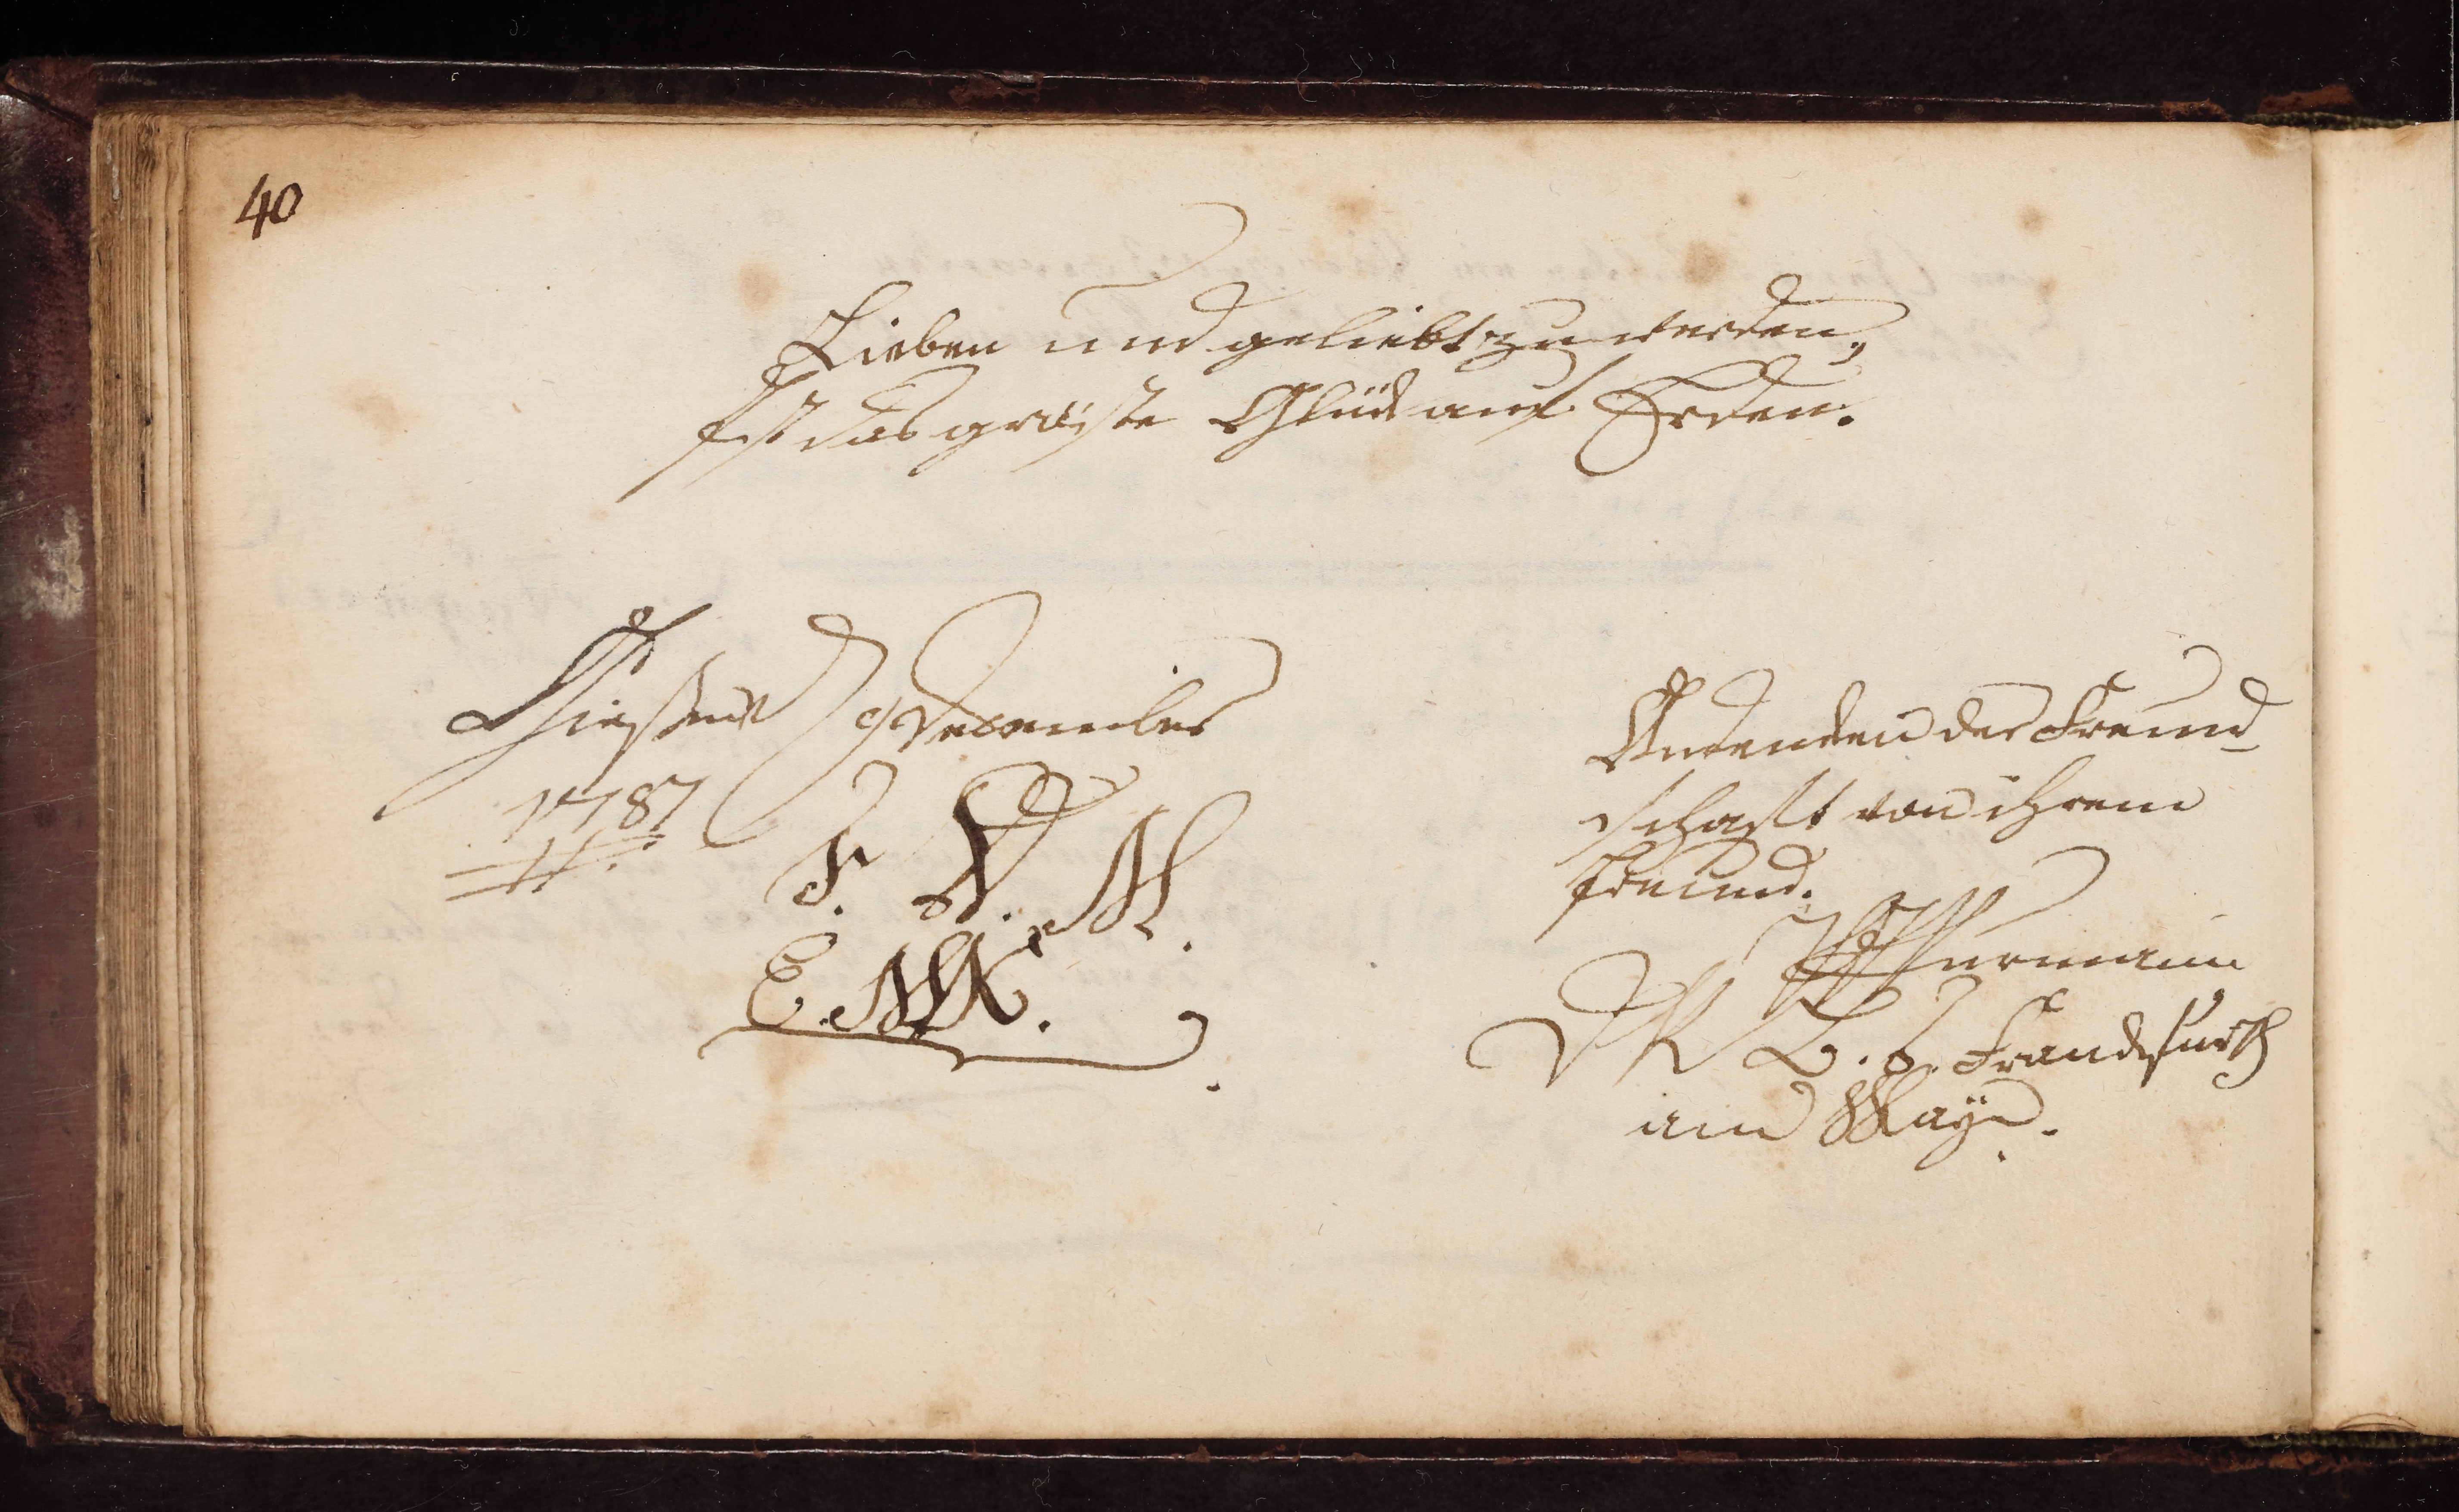 40
Lieben und geliebt zu werden,
Ist das gröste Glück auf Erden.
9 December
1787
F. V. M.
E. M.
Andencken der Freund-
schaft von ihrem
Freund.
F. Franckfurth
am Mayn.